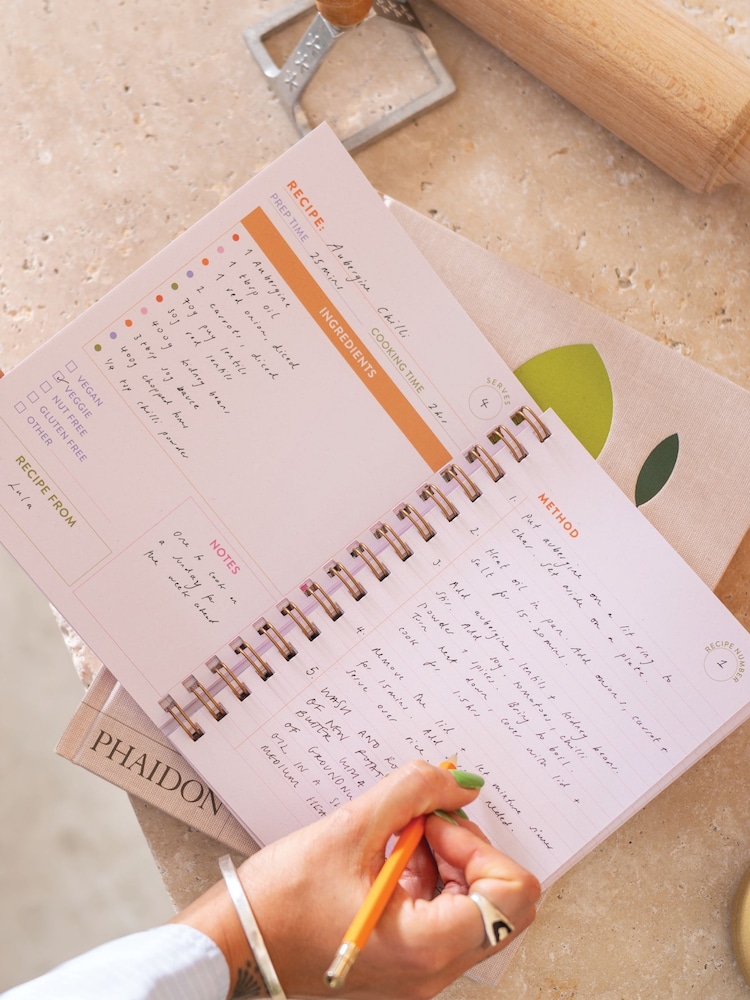 RECIPE: Aubergine Chilli
PREP TIME 25mins
COOKING TIME 2hr
SERVES 4
INGREDIENTS
1 Aubergine
1 tbsp oil
1 red onion, diced
2 carrots, diced
70g puy lentils
30g red lentils
400g kidney beans
3 tbsp soy sauce
400g chopped toms
1/4 tsp chilli powder
VEGAN
VEGGIE
NUT FREE
GLUTEN FREE
OTHER
RECIPE FROM
Lula
NOTES
One to cook on
a Sunday for
the week ahead
METHOD
RECIPE NUMBER 1
1. Put aubergine on a lit ring to
char. Set aside on a plate.
2. Heat oil in pan. Add onions, carrot +
salt for 15-20mins.
3. Add aubergine, lentils + kidney beans.
Stir. Add soy, tomatoes, chilli
powder + spices. Bring to boil.
Turn heat down, cover with lid +
cook for 1.5hrs
4. Remove the lid + let mixture simmer
for 15mins. Add
Serve over rice needed.
5. WASH AND
OF NEW
BUTTER
OF GROUNDNU
OIL IN A
MEDIUM
PHAIDON